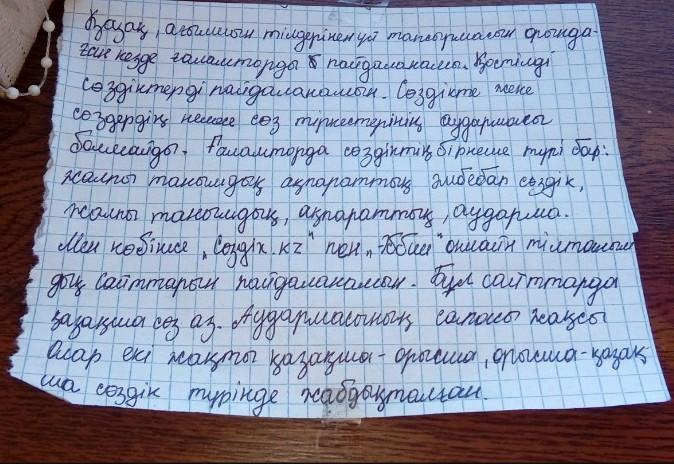 Қазақ, ағылшын тілдерінен үй тапсырмасын орында-
ған кезде ғаламторды пайдаланамы. Қостілді
сөздіктерді пайдаланамын. Сөздікте жеке
сөздердің немесе сөз тіркестерінің аудармасы
болмайды. Ғаламторда сөздіктің бірнеше түрі бар:
жалпы танымдық ақпараттық әмбебап сөздік,
жалпы танымдық, ақпараттық, аударма.
Мен көбінесе „Сөздік.kz" пен онлайн тілтаным
дық сайттарын пайдаланамын. Бұл сайттарда
қазақша сөз аз. Аудармасының сапасы жақсы
Олар екі жақты қазақша-орысша, орысша-қазақ
ша сөздік түрінде жабдықталған.